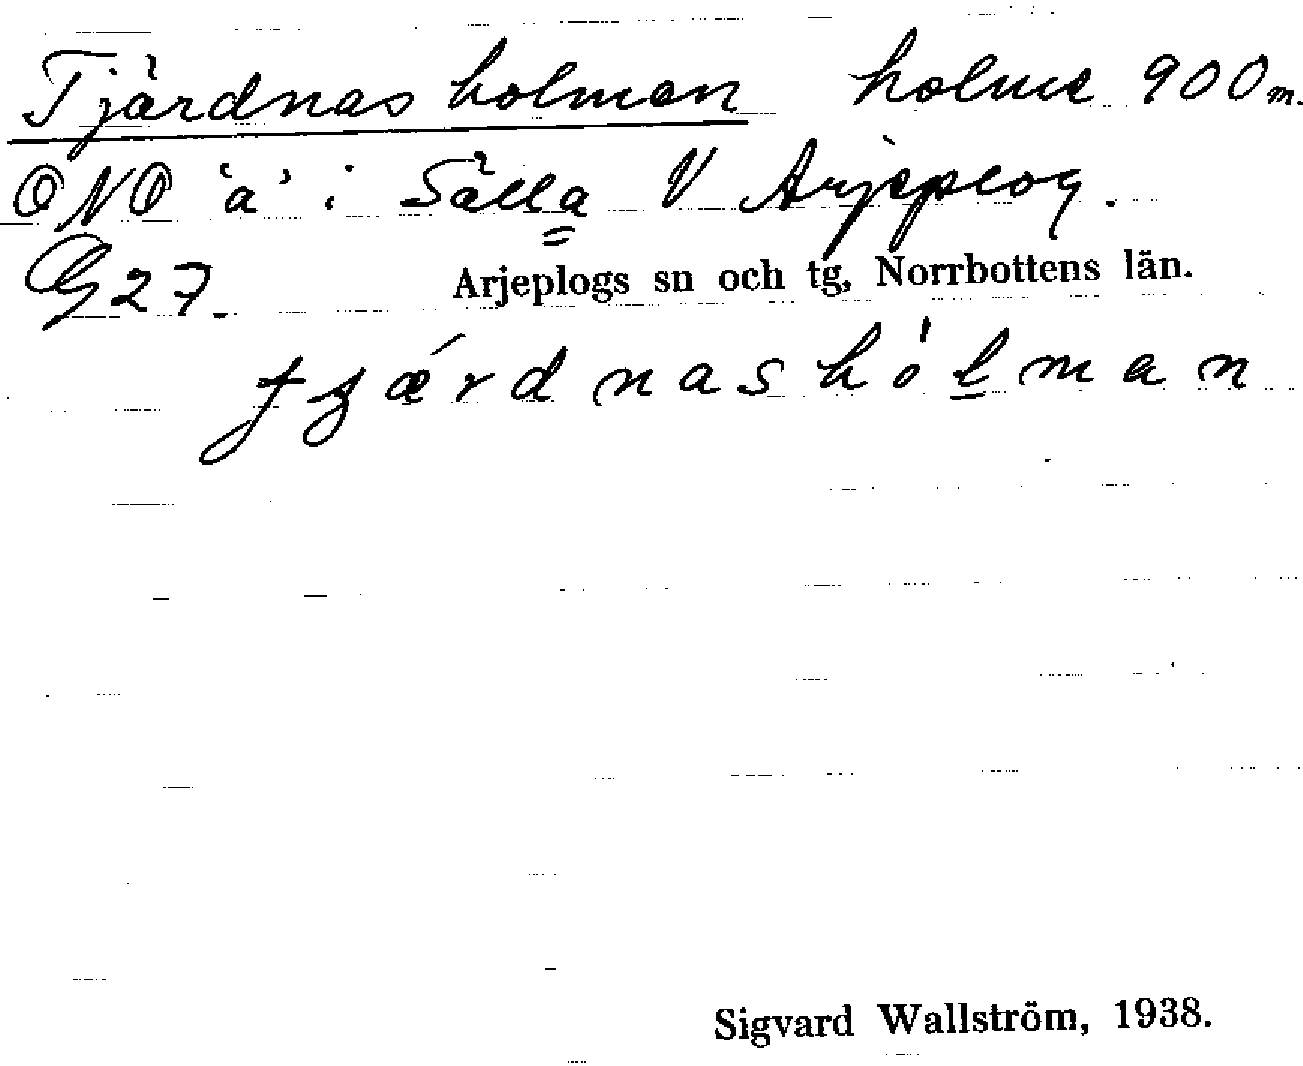 Tjärdnasholman holme 900 m.
ONO 'a' i Sälla V Arjeplog.
G 27. Arjeplogs sn och tg, Norrbottens län.
tjǽrdnashólman
Sigvard Wallström, 1938.